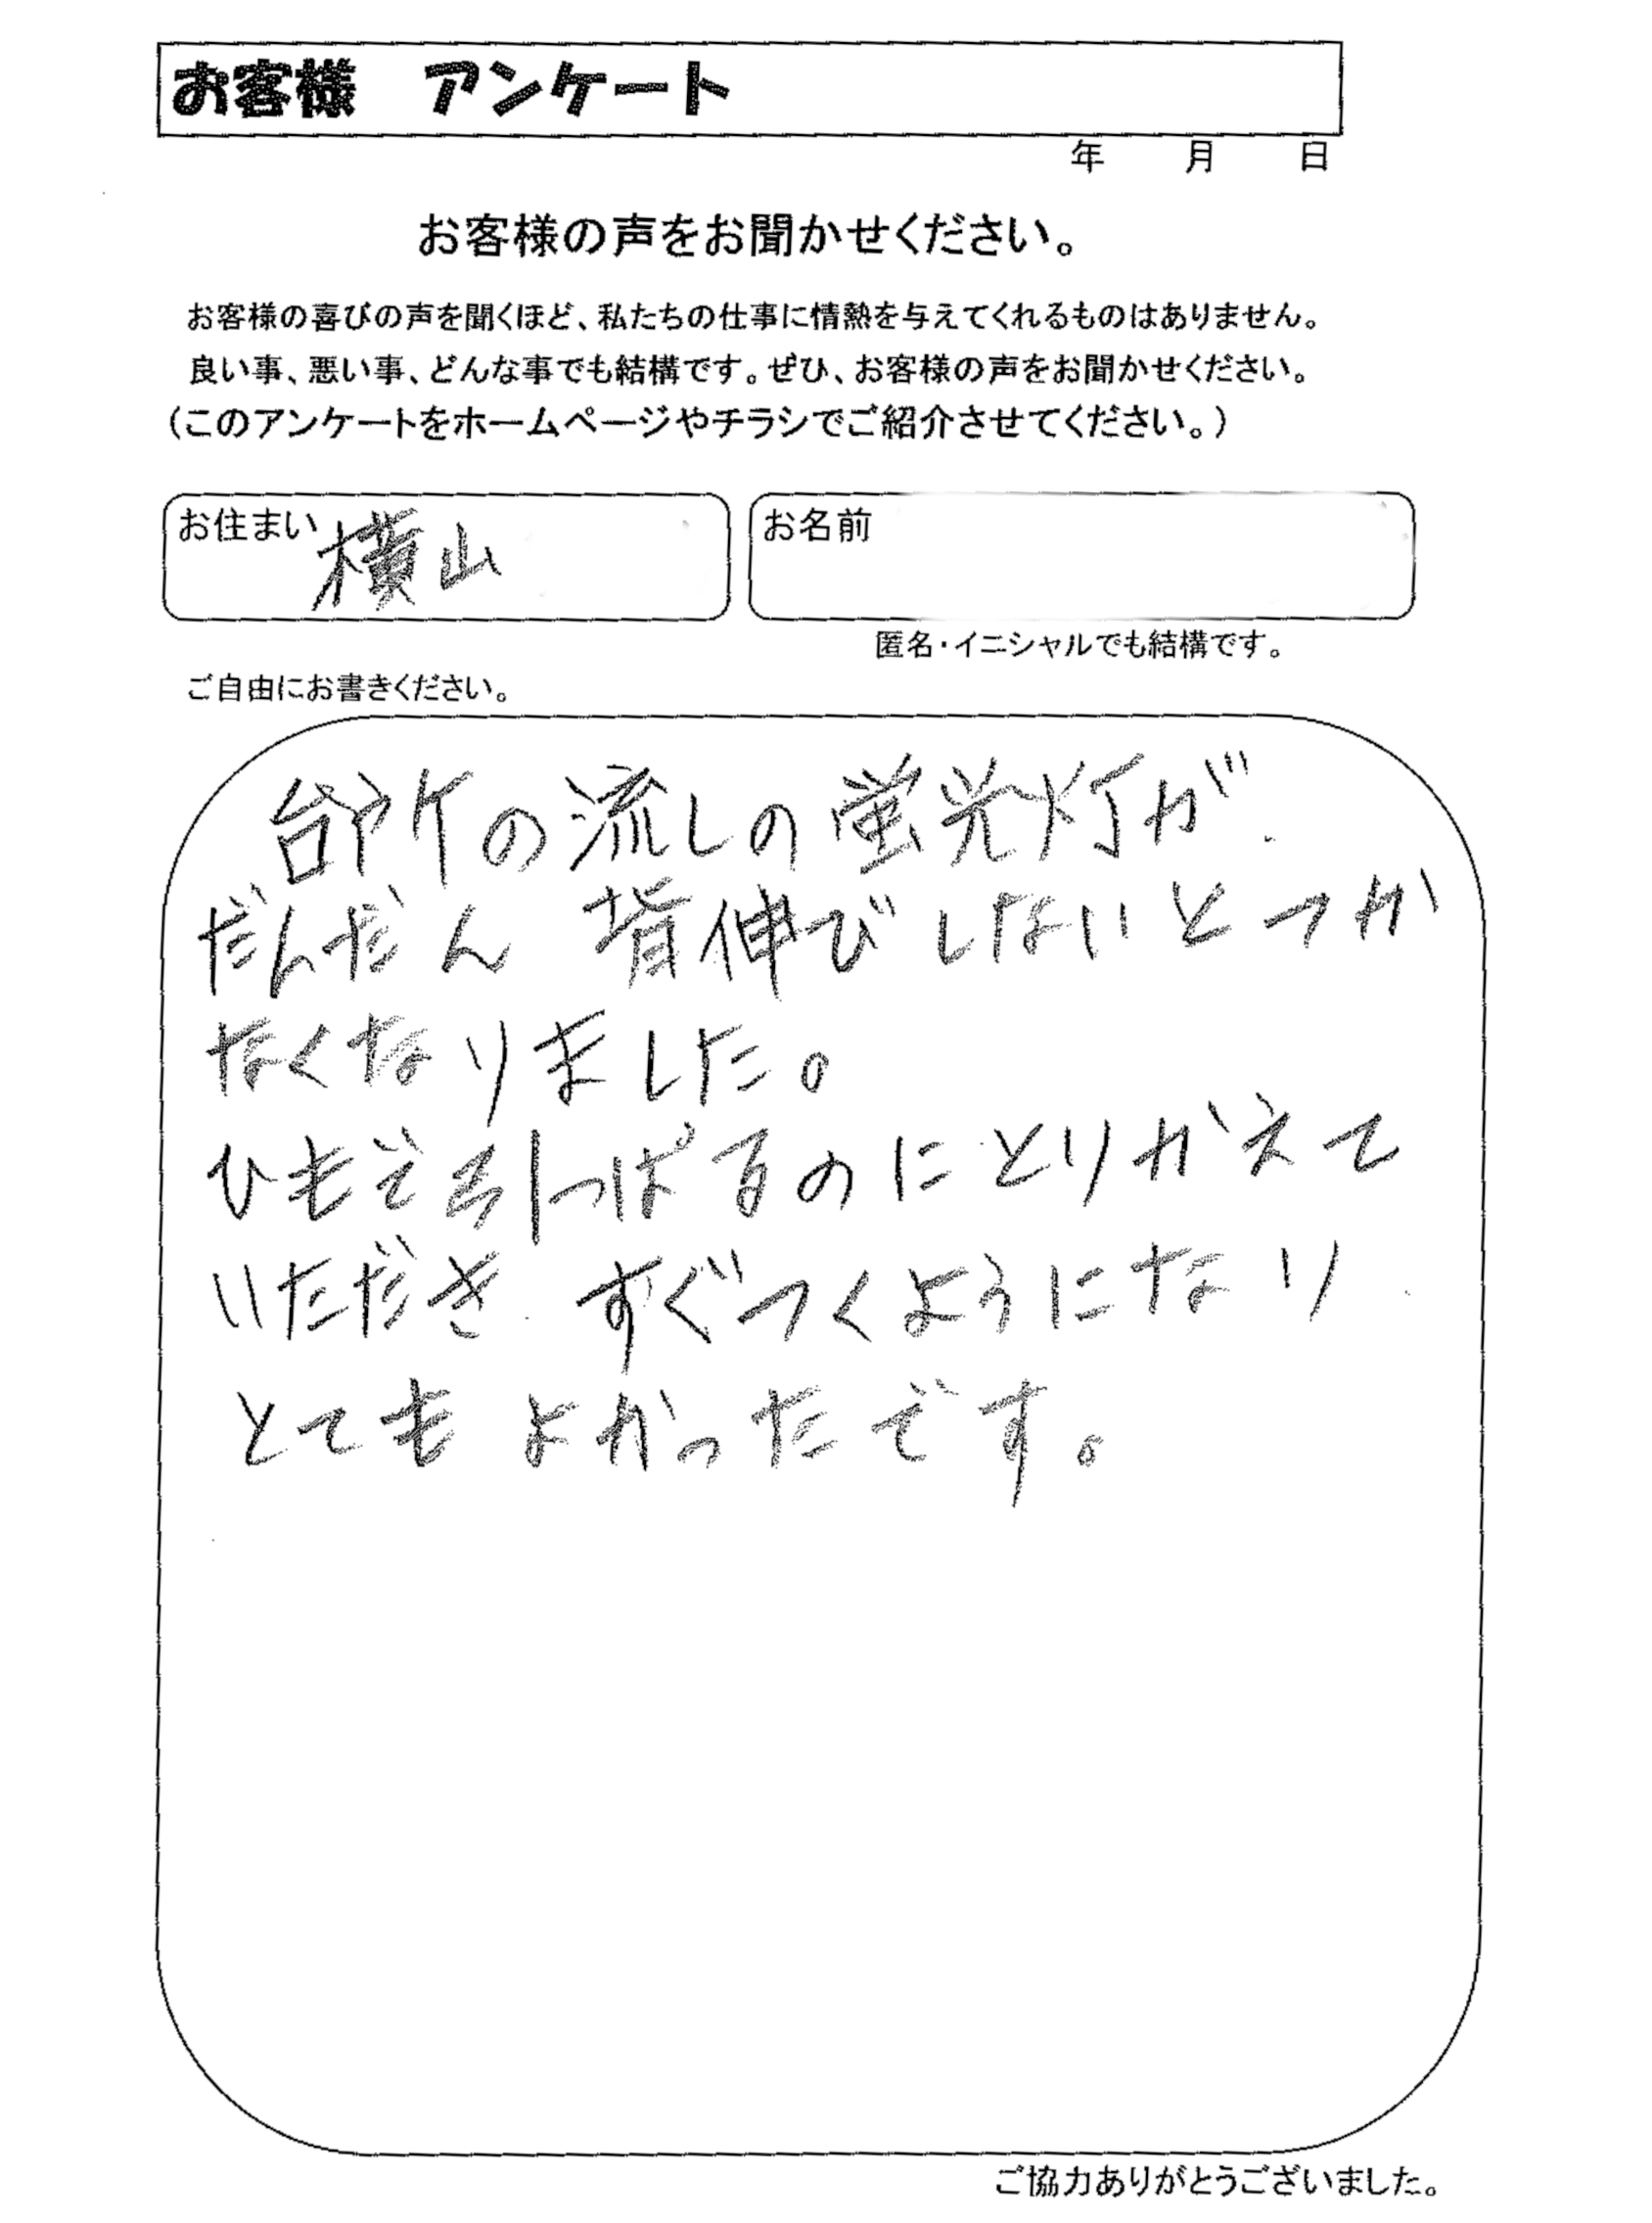 お客様　アンケート
年　月　日
お客様の声をお聞かせください。
お客様の喜びの声を聞くほど、私たちの仕事に情熱を与えてくれるものはありません。
良い事、悪い事、どんな事でも結構です。ぜひ、お客様の声をお聞かせください。
（このアンケートをホームページやチラシでご紹介させてください。）
お住まい 横山
お名前
匿名・イニシャルでも結構です。
ご自由にお書きください。
台所の流しの蛍光灯が
だんだん 背伸びしないとつか
なくなりました。
ひもで引っぱるのにとりかえて
いただき すぐつくようになり
とてもよかったです。
ご協力ありがとうございました。